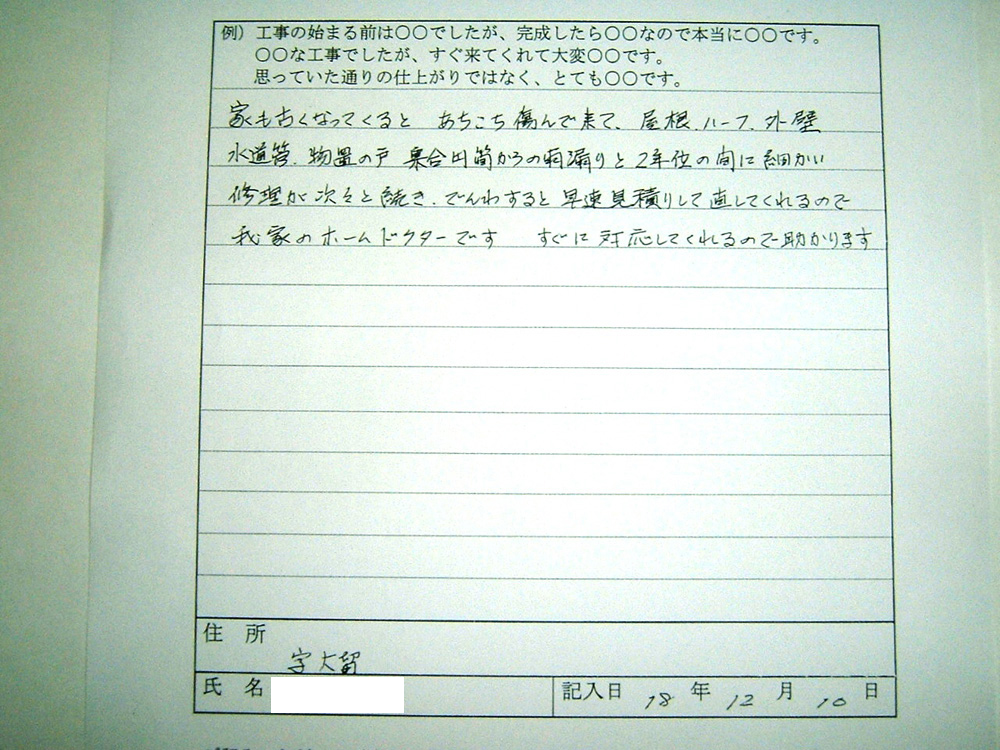 例）工事の始まる前は〇〇でしたが、完成したら〇〇なので本当に〇〇です。
〇〇な工事でしたが、すぐ来てくれて大変〇〇です。
思っていた通りの仕上がりではなく、とても〇〇です。
家も古くなってくると あちこち傷んで来て、屋根、ハーフ、外壁
水道管、物置の戸 集合出筒からの雨漏りと 2年位の間に細かい
修理が次々と続き、でんわすると早速見積りして直してくれるので
我家のホームドクターです すぐに対応してくれるので助かります
住 所
字大留
氏 名
記入日 18 年 12 月 10 日